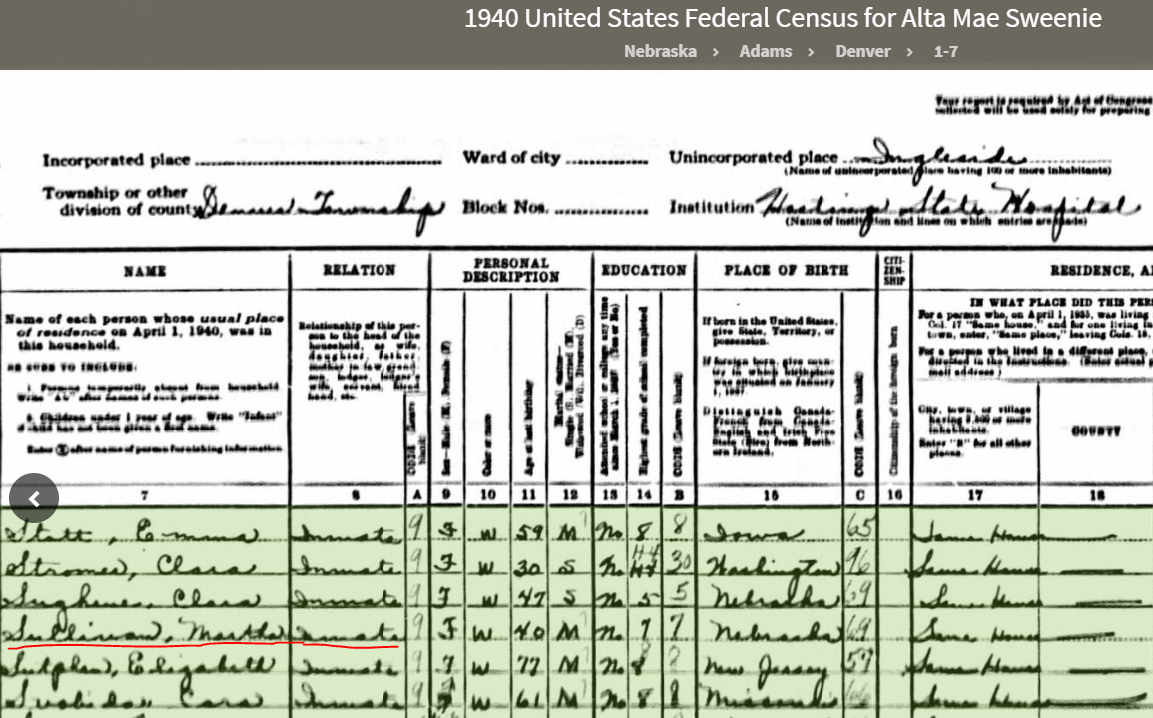 1940 United States Federal Census for Alta Mae Sweenie
Nebraska > Adams > Denver > 1-7
Your report is required by Act of Congress
collected will be used solely for preparing
Incorporated place Ward of city Unincorporated place Ingleside
(Name of unincorporated place having 100 or more inhabitants)
Township or other
division of county Denver Township Block Nos. Institution Hastings State Hospital
(Name of institution and lines on which entries are made)
NAME RELATION PERSONAL DESCRIPTION EDUCATION PLACE OF BIRTH CITI-ZEN-SHIP RESIDENCE, A
Name of each person whose usual place
of residence on April 1, 1940, was in
this household.
BE SURE TO INCLUDE:
1. Persons temporarily absent from household
Write "Ab" after names of such persons.
2. Children under 1 year of age. Write "Infant"
if child has not been given a first name.
Enter X after name of person furnishing information
Relationship of this per-
son to the head of the
household, as wife,
daughter, father,
mother-in-law, grand-
son, lodger, lodger's
wife, servant, hired
hand, etc.
CODE (Leave blank)
Sex—Male (M), Female (F)
Color or race
Age at last birthday
Marital status—
Single (S), Married (M),
Widowed (Wd), Divorced (D)
Attended school or college any time
since March 1, 1940? (Yes or No)
Highest grade of school completed
CODE (Leave blank)
If born in the United States,
give State, Territory, or
possession.
If foreign born, give coun-
try in which birthplace
was situated on January
1, 1937.
Distinguish Canada-
French from Canada-
English and Irish Free
State (Eire) from North-
ern Ireland.
CODE (Leave blank)
Citizenship of the foreign born
IN WHAT PLACE DID THIS PERS
For a person who, on April 1, 1935, was living
Col. 17 "Same house," and for one living in
town, enter, "Same place," leaving Cols. 18,
For a person who lived in a different place,
directed in the Instructions. (Enter actual
mail address.)
City, town, or village
having 2,500 or more
inhabitants.
Enter "R" for all other
places.
COUNTY
7 8 A 9 10 11 12 13 14 B 15 C 16 17 18
Statt, Emma Inmate 9 F W 59 M No 8 8 Iowa 65 Same House
Clara Inmate 9 F W 30 S No H4 30 Washington 96 Same House
Clara Inmate 9 F W 47 S No 5 5 Nebraska 69 Same House
Sullivan, Martha Inmate 9 F W 40 M No 7 7 Nebraska 69 Same House
Sutphen, Elizabeth Inmate 9 F W 77 M No 8 New Jersey 57 Same House
Svoboda, Cora Inmate 9 F W 61 M No 8 8 Missouri 66 Same House